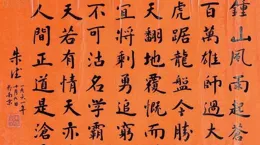 鍾山風雨起蒼
百萬雄師過大
虎踞龍盤今勝
天翻地覆慨而
宜將剩勇追窮
不可沽名學霸
天若有情天亦
人間正道是滄
朱